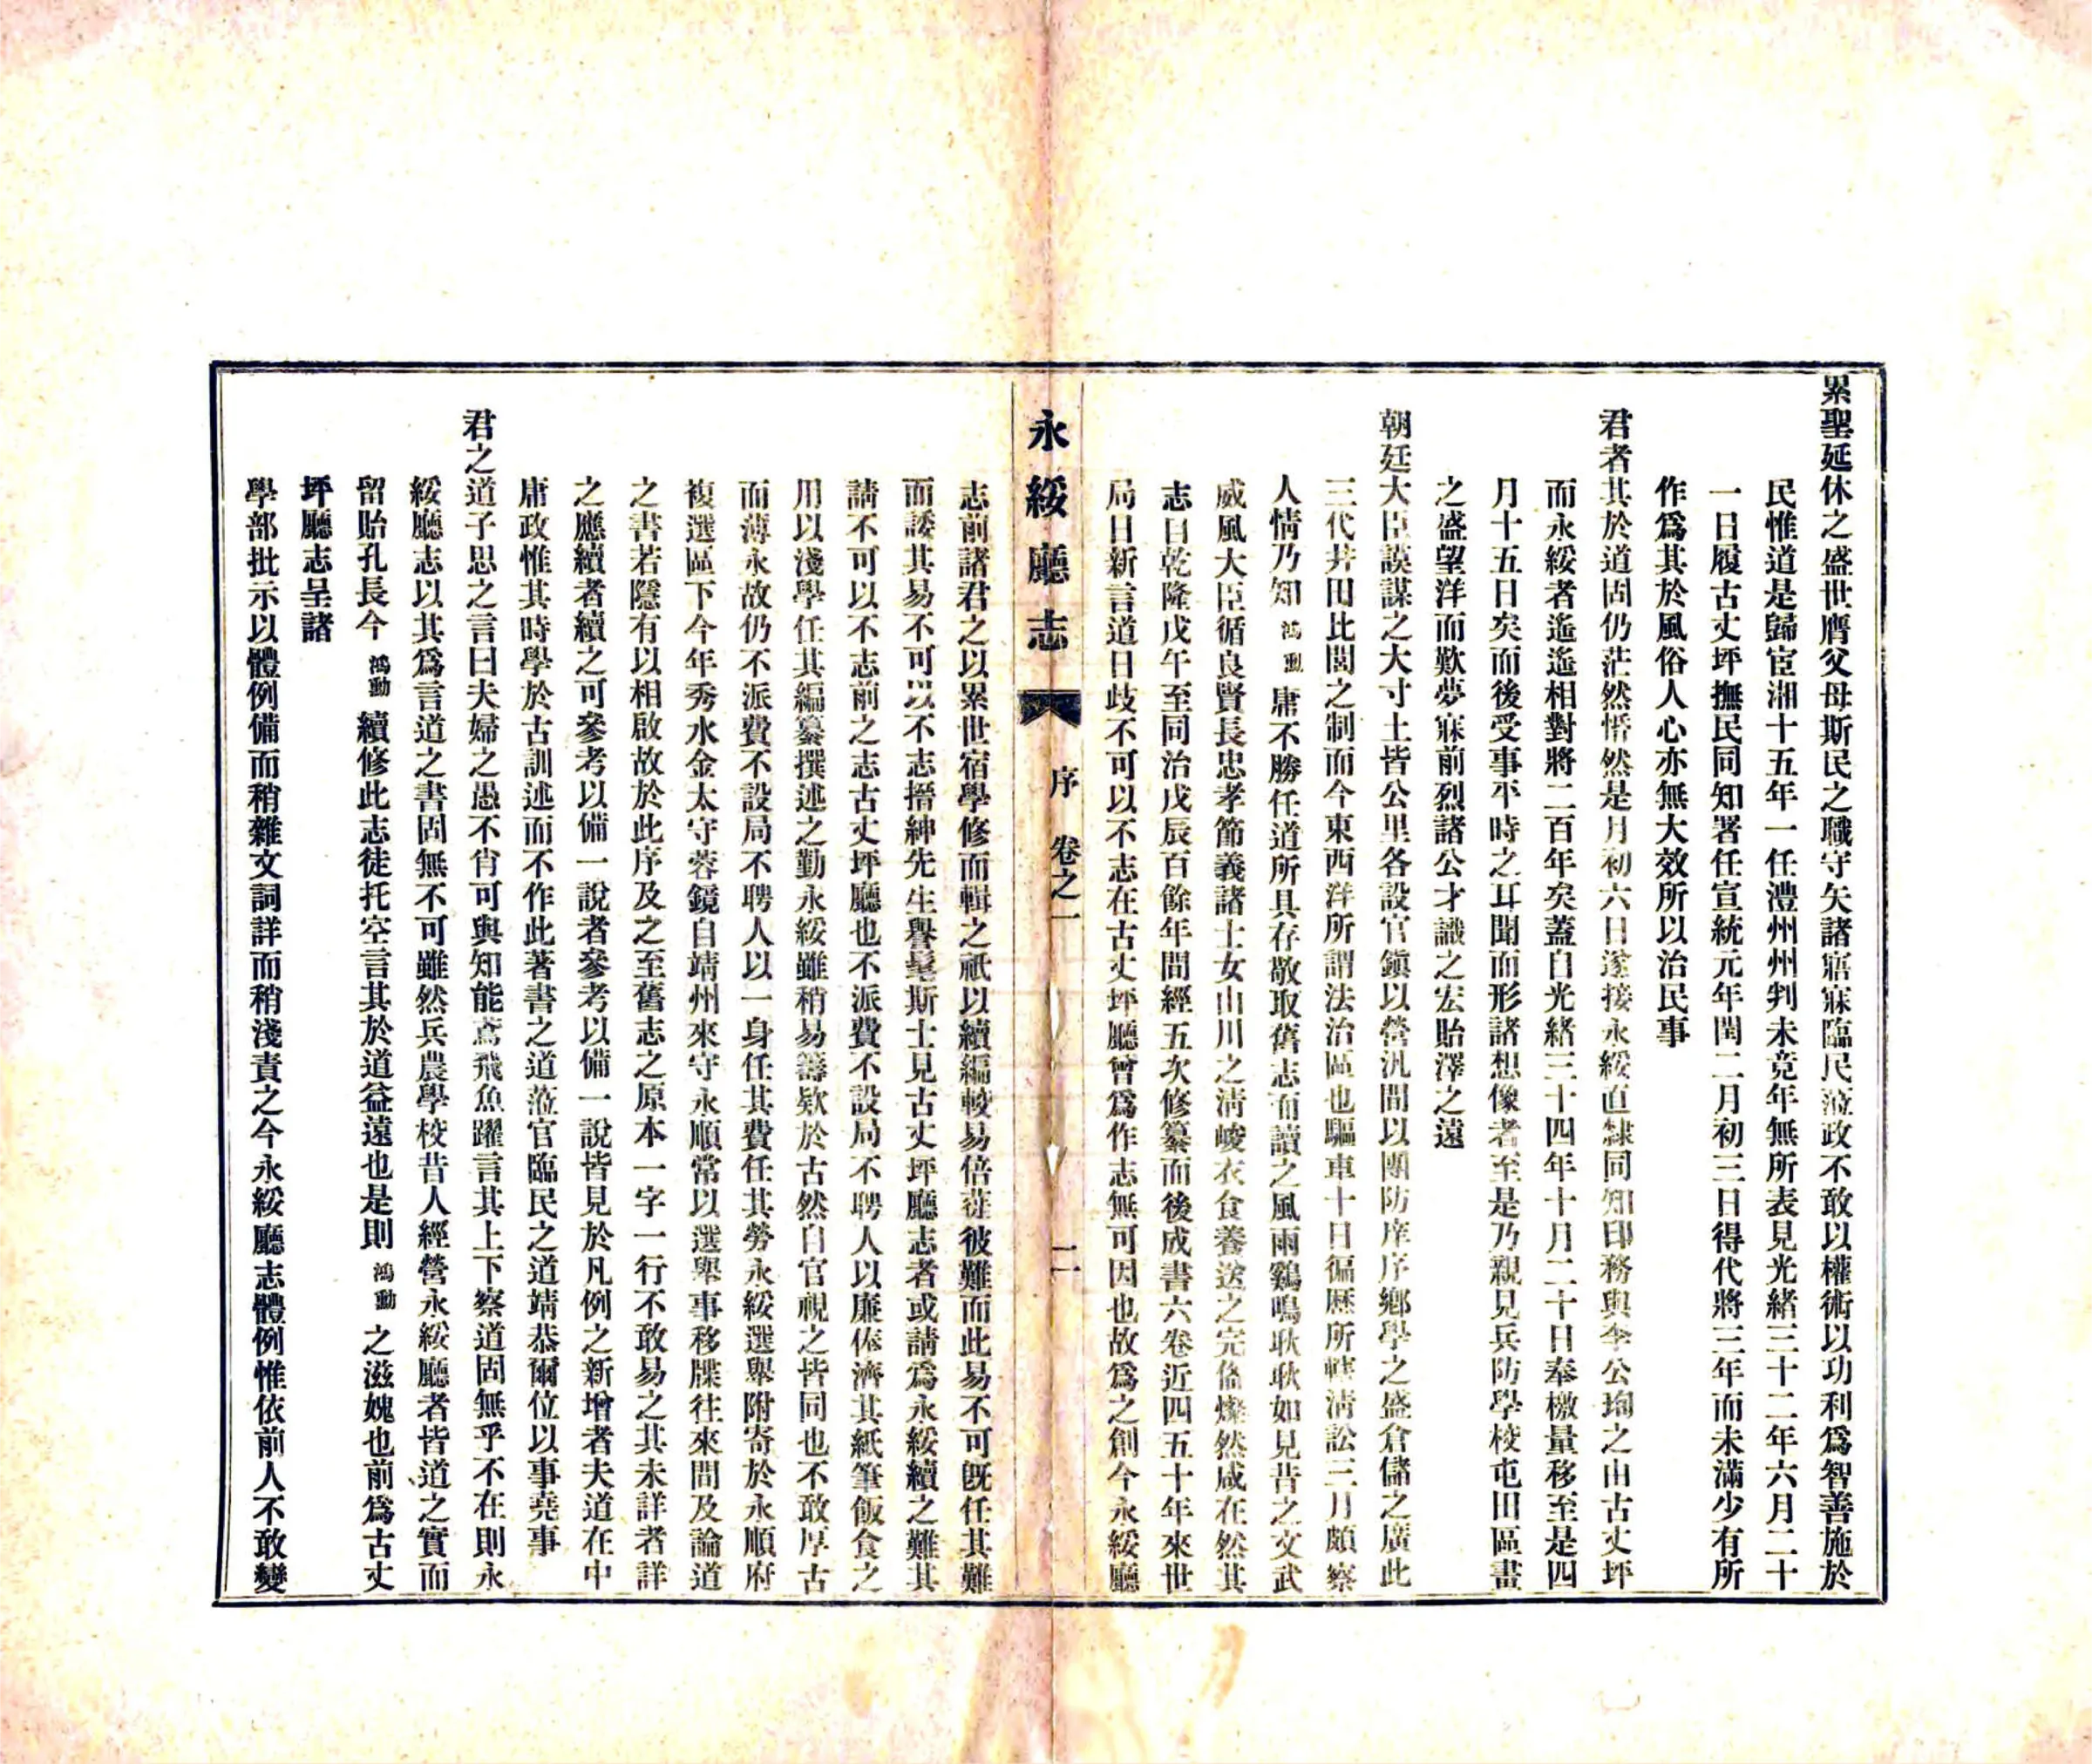 累聖延休之盛世膺父母斯民之職守矢諸寤寐臨民蒞政不敢以權術以功利爲智善施於
民惟道是歸宦湘十五年一任澧州州判未竞年無所表見光緒三十二年六月二十
一日履古丈坪撫民同知署任宣統元年閏二月初三日得代將三年而未滿少有所
作爲其於風俗人心亦無大效所以治民事
君者其於道固仍茫然惛然是月初六日遂接永綏直隸同知印務與李公珣之由古丈坪
而永綏者遙遙相對將二百年矣蓋自光緒三十四年十月二十日奉檄量移至是四
月十五日矣而後受事平時之耳聞而形諸想像者至是乃親見兵防學校屯田區畫
之盛望洋而歎夢寐前烈諸公才識之宏貽澤之遠
朝廷大臣謨謀之大寸土皆公里各設官鎮以營汛間以團防庠序鄉學之盛倉儲之廣此
三代井田比閭之制而今東西洋所謂法治區也驅車十日徧歷所轄清訟三月頗察
人情乃知鴻勳庸不勝任道所具存敬取舊志而讀之風雨鷄鳴耿耿如見昔之文武
威風大臣循良賢長忠孝節義諸士女山川之清峻衣食養送之完俻燦然咸在然其
志曰乾隆戊午至同治戊辰百餘年間經五次修纂而後成書六卷近四五十年來世
局日新言道日歧不可以不志在古丈坪廳曾爲作志無可因也故爲之創今永綏廳
永綏廳志 序 卷之一 二
志前諸君之以累世宿學修而輯之祇以續編較易倍蓰彼難而此易不可旣任其難
而諉其易不可以不志搢紳先生譽髦斯士見古丈坪廳志者或請爲永綏續之難其
請不可以不志前之志古丈坪廳也不派費不設局不聘人以廉俸濟其紙筆飯食之
用以淺學任其編纂撰述之勤永綏雖稍易籌欵於古然自官視之皆同也不敢厚古
而薄永故仍不派費不設局不聘人以一身任其費任其勞永綏選舉附寄於永順府
複選區下今年秀水金太守蓉鏡自靖州來守永順常以選舉事移牒往來間及論道
之書若隱有以相啟故於此序及之至舊志之原本一字一行不敢易之其未詳者詳
之應續者續之可參考以備一說者參考以備一說皆見於凡例之新增者夫道在中
庸政惟其時學於古訓述而不作此著書之道蒞官臨民之道靖恭爾位以事堯事
君之道子思之言曰夫婦之愚不肖可與知能鳶飛魚躍言其上下察道固無乎不在則永
綏廳志以其爲言道之書固無不可雖然兵農學校昔人經營永綏廳者皆道之實而
留貽孔長今鴻勳續修此志徒托空言其於道益遠也是則鴻勳之滋媿也前爲古丈
坪廳志呈諸
學部批示以體例備而稍雜文詞詳而稍淺責之今永綏廳志體例惟依前人不敢變